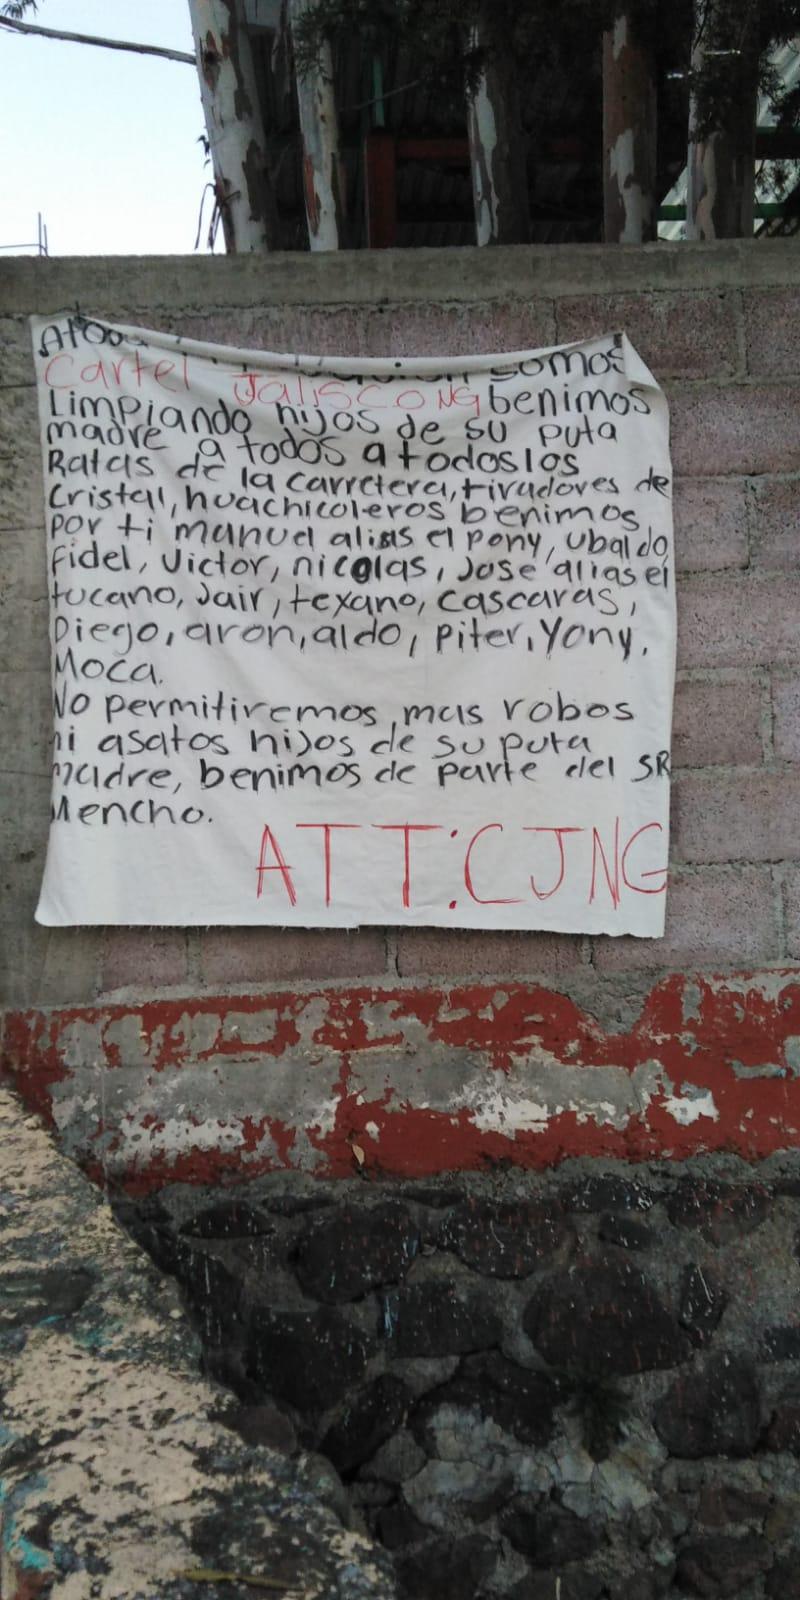 somos
Cartel Jalisco NG benimos
Limpiando hijos de su puta
madre a todos a todos los
Ratas de la carretera, tiradores de
Cristal, huachicoleros benimos
por ti manuel alias el pony, ubaldo,
fidel, Victor, nicolas, Jose alias el
tucano, Jair, texano, cascaras,
Diego, aron, aldo, Piter, Yony,
Moca.
No permitiremos mas robos
ni asatos hijos de su puta
madre, benimos de parte del SR
Mencho.
ATT:CJNG